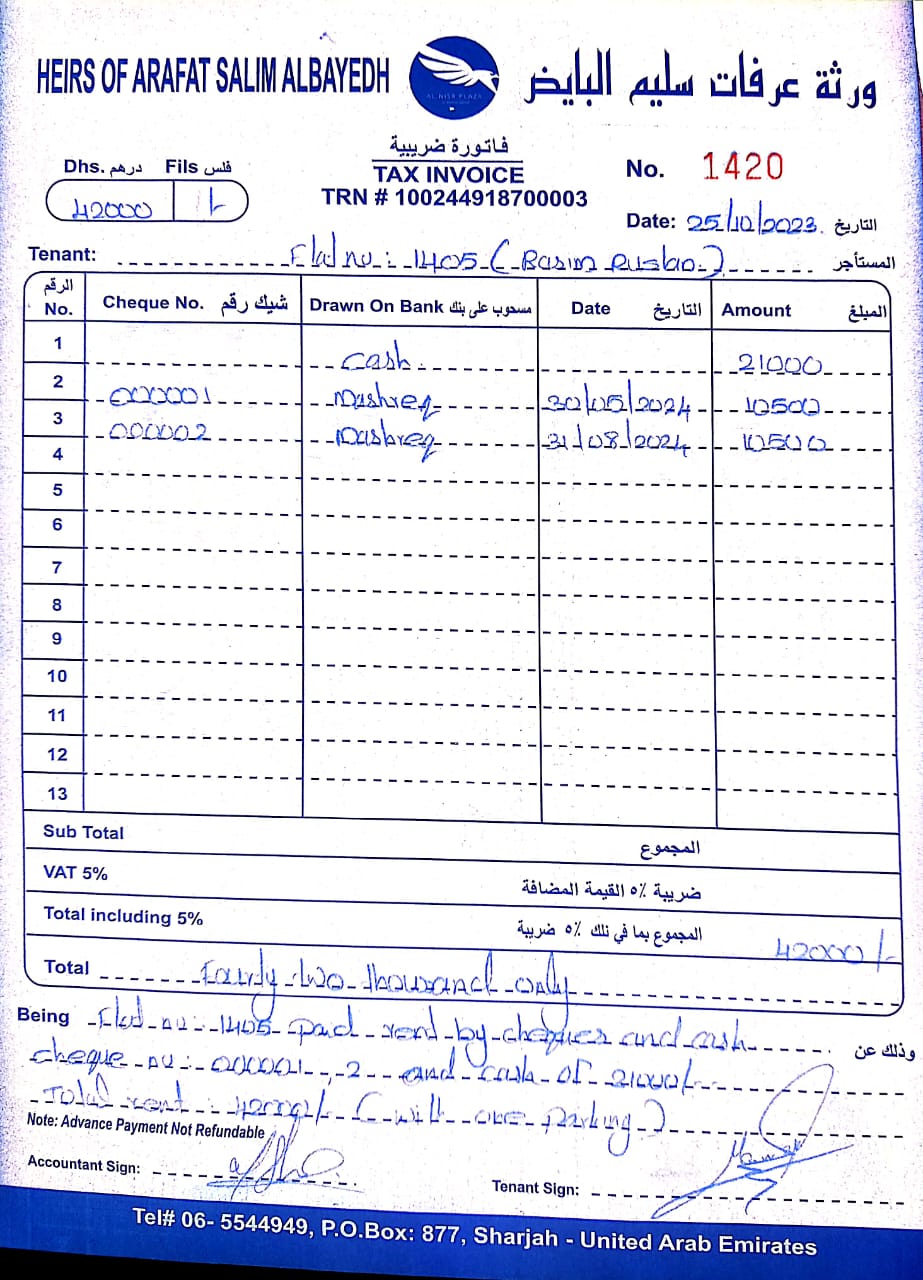 HEIRS OF ARAFAT SALIM ALBAYEDH
ورثة عرفات سليم البايض
AL NISR PLAZA
فاتورة ضريبية
TAX INVOICE
TRN # 100244918700003
Dhs. درهم Fils فلس
42000 /-
No. 1420
Date: 25/10/2023 التاريخ
Tenant: Flat no: 1405 (Basim Ruslan) المستأجر
الرقم No. Cheque No. شيك رقم Drawn On Bank مسحوب على بنك Date التاريخ Amount المبلغ
1 Cash. 21000
2 000001 Mashreq 30/05/2024 10500
3 000002 Mashreq 31/08/2024 10500
4
5
6
7
8
9
10
11
12
13
Sub Total المجموع
VAT 5% ضريبة ٥% القيمة المضافة
Total including 5% المجموع بما في ذلك ٥% ضريبة 42000/-
Total Fourty two thousand only
Being Flat no: 1405 paid rent by cheques and cash وذلك عن
cheque no: 000001, 2 and cash of 21000/-
Total rent: 42000/- (with one parking)
Note: Advance Payment Not Refundable
Accountant Sign:
Tenant Sign:
Tel# 06- 5544949, P.O.Box: 877, Sharjah - United Arab Emirates